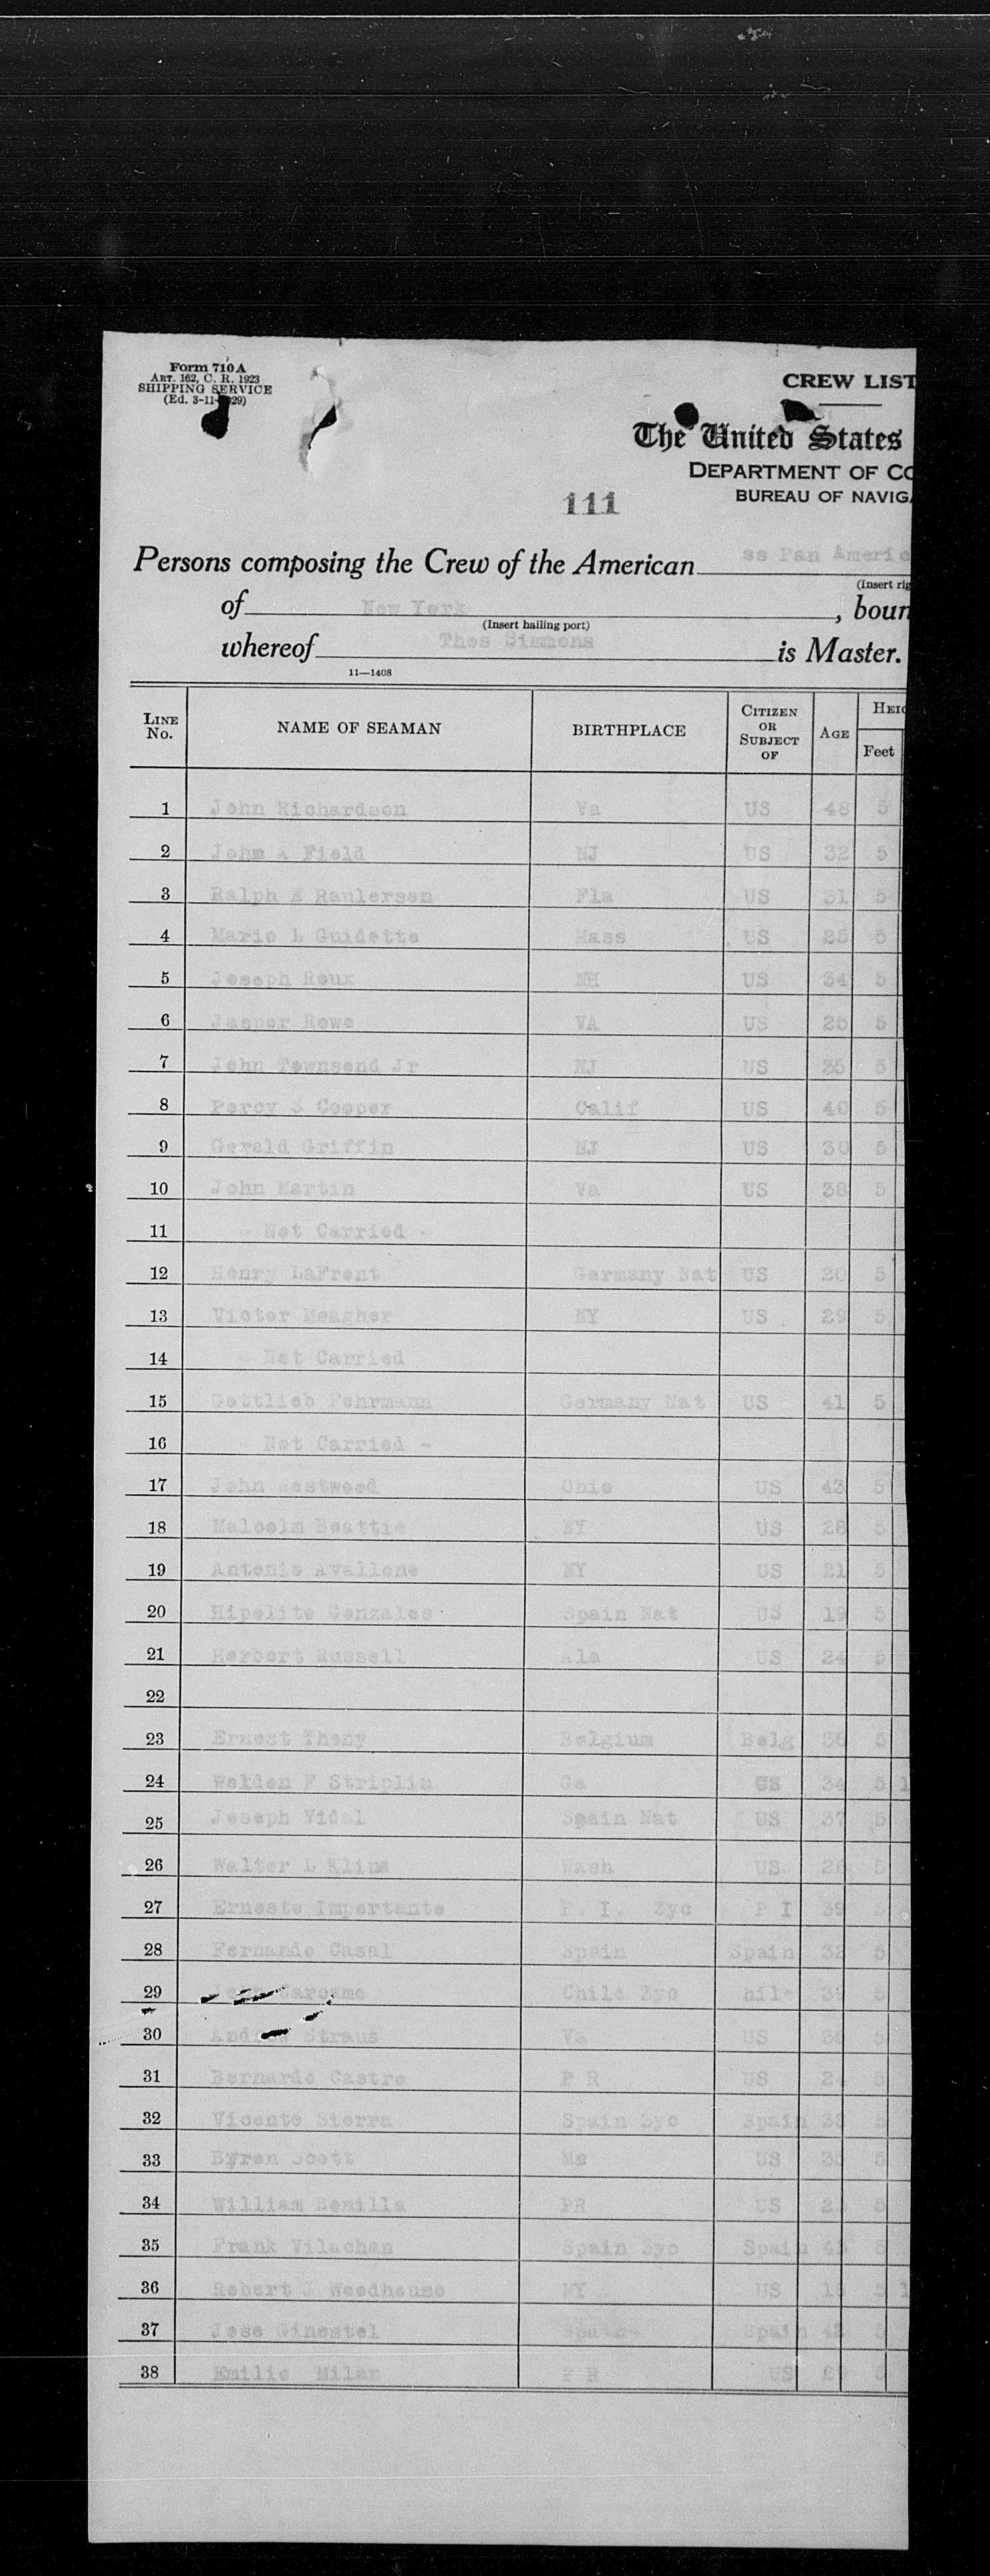 Form 710 A
ART. 162, C. R. 1923
SHIPPING SERVICE
(Ed. 3-11-1929)
CREW LIST
The United States
DEPARTMENT OF CO
BUREAU OF NAVIGA
111
Persons composing the Crew of the American ss Pan Americ
(Insert rig
of New York, boun
(Insert hailing port)
whereof Thos Simmons is Master.
11—1408
LINE No. NAME OF SEAMAN BIRTHPLACE CITIZEN OR SUBJECT OF AGE HEIG
Feet
1 John Richardson Va US 48 5
2 John A Field NJ US 32 5
3 Ralph E Raulerson Fla US 31 5
4 Mario L Guidette Mass US 25 5
5 Joseph Roux NH US 34 5
6 Jasper Rowe VA US 5
7 John Townsend Jr NJ US 5
8 Percy S Cooper Calif US 40 5
9 Gerald Griffin NJ US 30 5
10 John Martin Va US 38 5
11 - Not Carried -
12 Henry LaFrent Germany Nat US 20 5
13 Victor Meagher NY US 29 5
14 Not Carried
15 Gottlieb Fehrmann Germany Nat US 41 5
16 Not Carried -
17 John Westwood Ohio US 43 5
18 Malcolm Beattie NY US 28 5
19 Antonio Avallone NY US 21 5
20 Hipolito Gonzales Spain Nat US 19 5
21 Herbert Russell Ala US 24 5
22
23 Ernest Theny Belgium Belg 5
24 Welden F Striplin Ga US 34 5 1
25 Joseph Vidal Spain Nat US 37 5
26 Walter L Kline Wash US 5
27 Ernesto Importante P I. 3yc P I 39 5
28 Fernando Casal Spain Spain 5
29 Carcamo Chile 3yc hile 5
30 Straus Va US 5
31 Bernardo Castro P R US 5
32 Vicente Sierra Spain 3yc Spain 5
33 Byron Scott US 5
34 William Bonilla PR US 5
35 Frank Vilachan Spain 3yc Spain 5
36 Robert J Woodhouse NY US 5 1
37 Jose Ginestel Spain Spain 5
38 Emilio Milan P R US 5